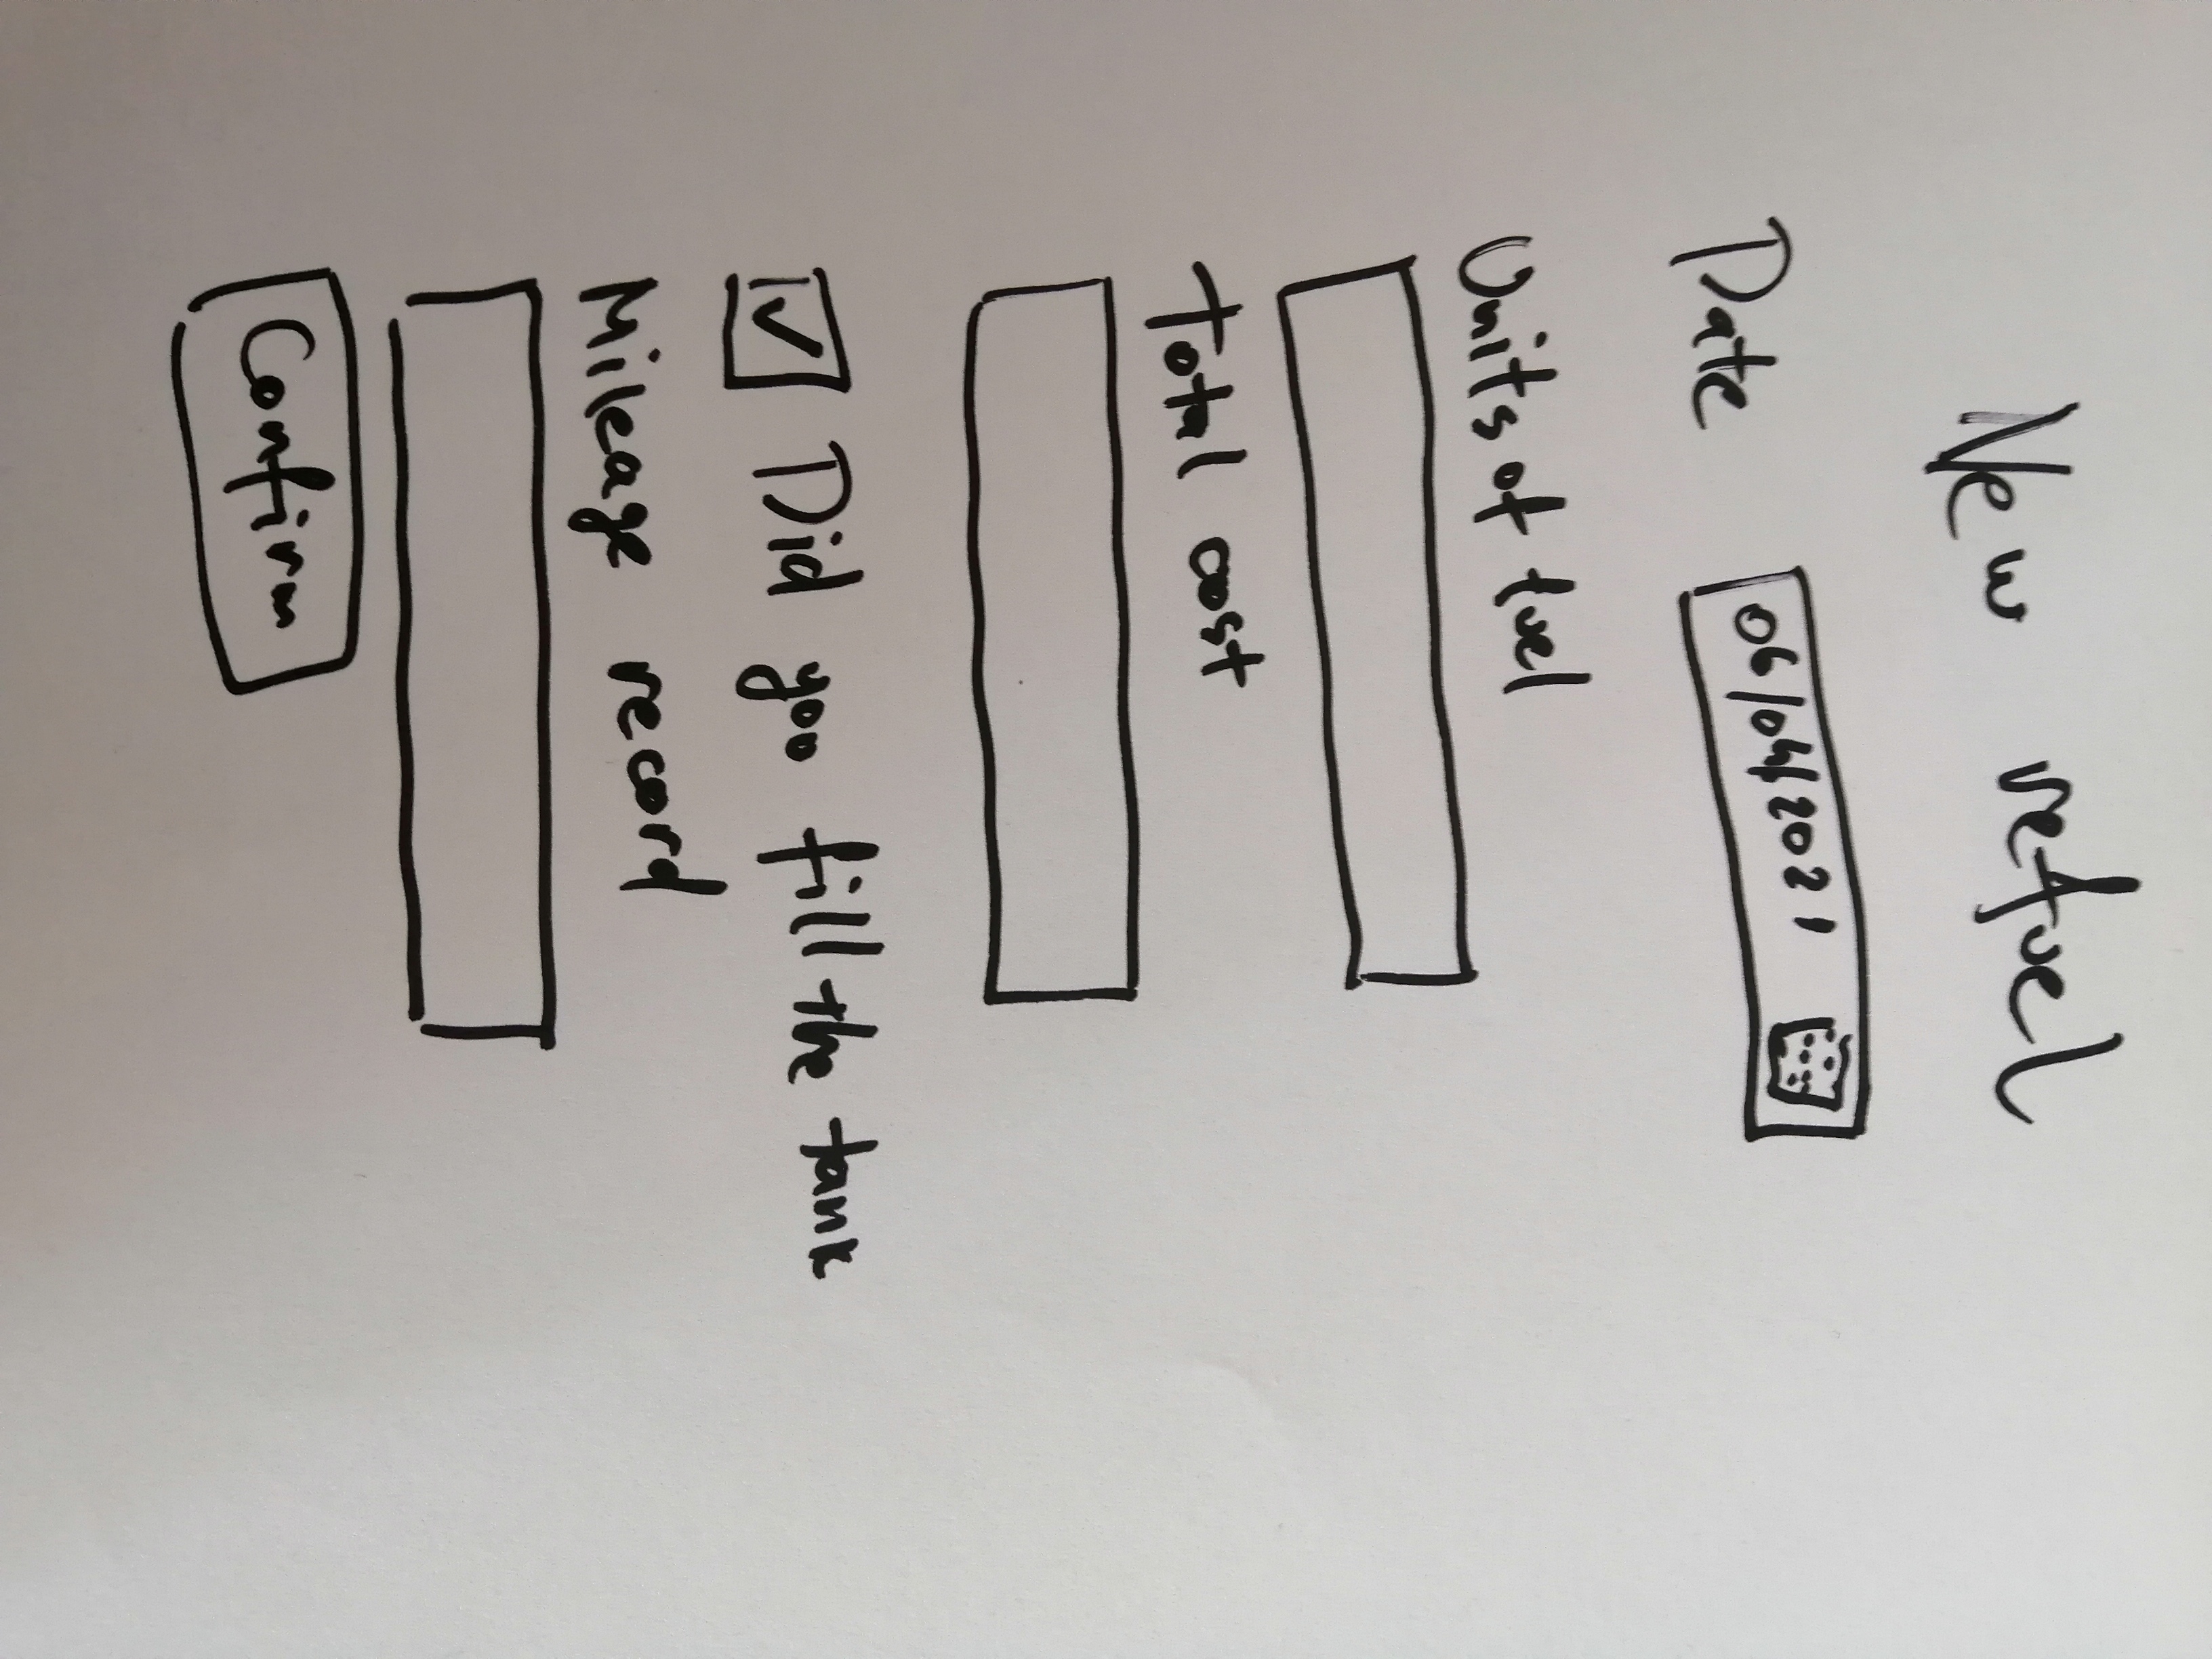 New refuel
Date 06/04/2021
Units of fuel
Total cost
Did you fill the tank
Mileage record
Confirm